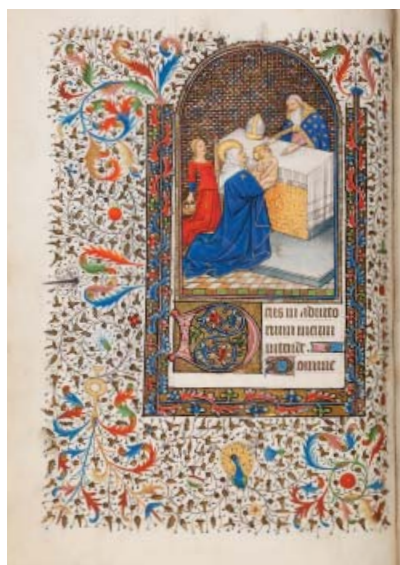 Deus in adiuto
rium meum
intende.
Domine